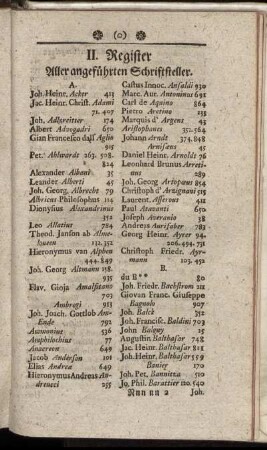 (o)
II. Register
Aller angeführten Schriftsteller.
A.
Joh. Heinr. Acker 421
Jac. Heinr. Christ. Adami
72. 407
Joh. Adlzreitter 174
Albert Advogadri 650
Gian Francesco dall' Aglio
915
Pet. Ahlwardt 263. 508.
823
Alexander Albani 35
Leander Alberti 45
Joh. Georg. Albrecht 79
Albricus Philosophus 114
Dionysius Alexandrinus
352
Leo Allatius 784
Theod. Jansen ab Alme-
loveen 132. 352
Hieronymus van Alphen
444. 847
Joh. Georg Altmann 158.
935
Elav. Gioja Amalfitano
703
Ambrogi 923
Joh. Joach. Gottlob Am-
Ende 792
Ammonius 536
Amphilochius 77
Anacreon 649
Jacob Anderson 101
Elias Andreä 649
Hieronymus Andreas An-
dreucci 255
Castus Innoc. Ansaldi 930
Marc. Aur. Antoninus 691
Carl de Aquino 864
Pietro Aretino 233
Marquis d' Argens 45
Aristophanes 352. 564
Johann Arndt 374. 848
Arnisäus 45
Daniel Heinr. Arnoldt 76
Leonhard Brunus Arreti-
nus 281
Joh. Georg Artopäus 854
Christoph d' Arzignani 515
Laurent. Assferus 411
Paul Atamanti 650
Joseph Averanio 38
Andreas Aurifaber 783
Georg Heinr. Ayrer 94.
206. 494. 731
Christoph Friedr. Ayr-
mann 103. 452
B.
du B** 80
Joh. Friedr. Bachstrom 211
Giovan Franc. Giuseppe
Bagnolo 907
Joh. Balck 352
Joh. Francisc. Baldini 703
John Balguy 15
Augustin Balthasar 748
Jac. Heinr. Balthasar 811
Joh. Heinr. Balthasar 559
Banier 170
Joh. Pet. Banniza 550
Jo. Phil. Barattier 120. 540
Nnn nn 2 Joh.